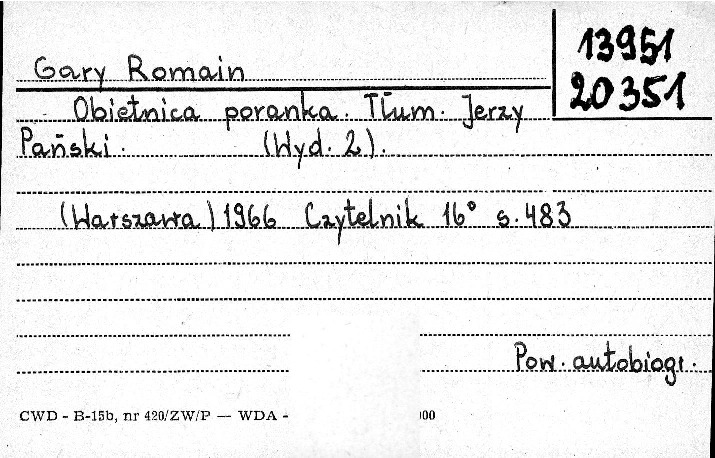 13951
20351
Gary Romain
Obietnica poranka. Tłum. Jerzy
Pański. (Wyd. 2).
(Warszawa) 1966 Czytelnik 16° s. 483
Pow. autobiogr.
CWD - B-15b, nr 420/ZW/P — WDA - 00